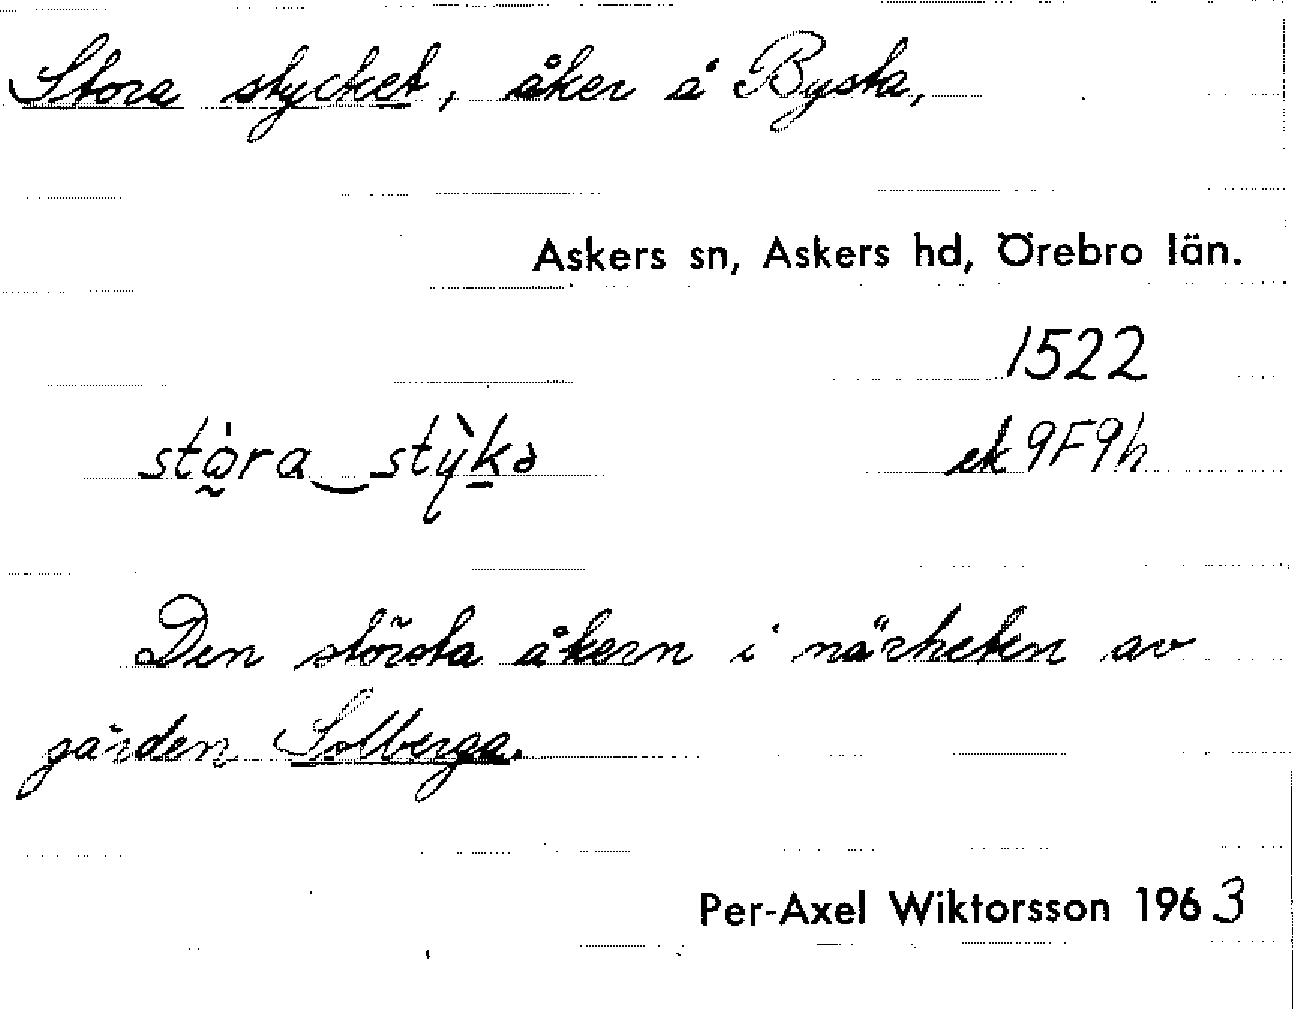 Stora stycket, åker å Bysta,
Askers sn, Askers hd, Örebro län.
1522
stora stykə
ek 9F9h
Den största åkern i närheten av
gården Solberga.
Per-Axel Wiktorsson 1963